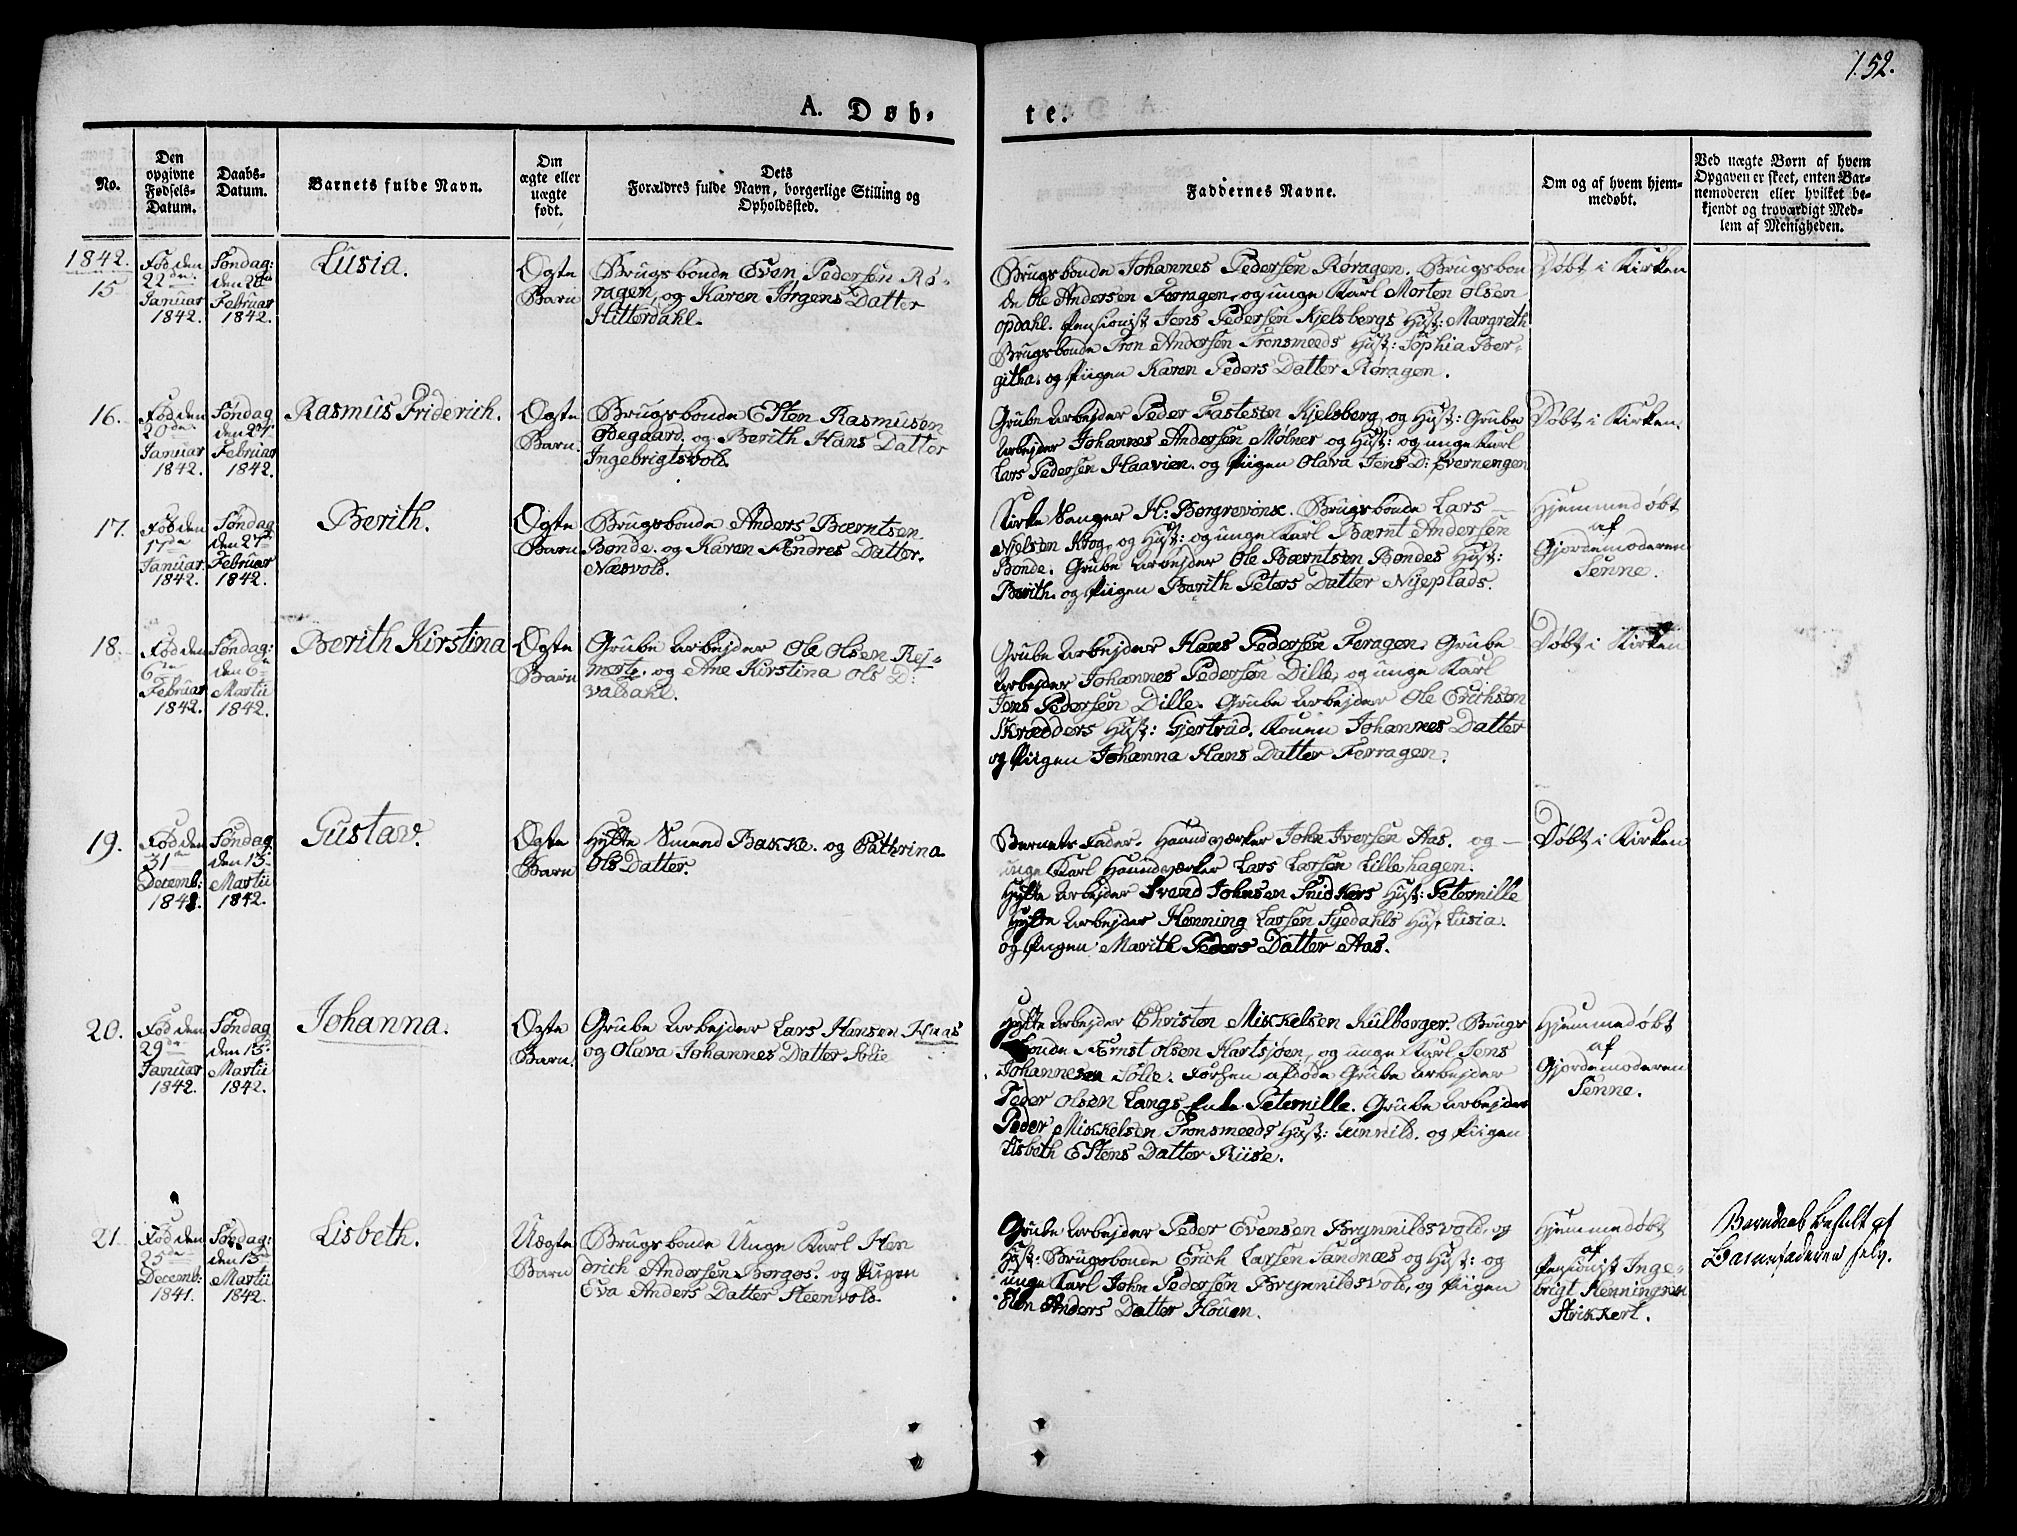 152.
A. Døb-
te.
No.
Den
opgivne
Fødsels-
Datum.
Daabs-
Datum.
Barnets fulde Navn.
Om
ægte eller
uægte
født.
Dets
Forældres fulde Navn, borgerlige Stilling og
Opholdssted.
Faddernes Navne.
Om og af hvem hjem-
medøbt.
Ved uægte Børn af hvem
Opgaven er skeet, enten Bar-
nemoderen eller hvilket be-
kjendt og troværdigt Med-
lem af Menigheden.
1842.
15
Fød den
22de
Januar
1842.
Søndag:
den 20de
Februar
1842.
Lusia.
Ægte
Barn
Brugsbonde Even Pedersen Rø-
ragen, og Karen Jørgens Datter
Hitterdahl.
Brugsbonde Johannes Pedersen Røragen. Brugsbon
de Ole Andersen Feragen, og unge Karl Morten Olsen
Opdahl. Pensionist Jens Pedersen Kjelsbergs Hust: Margreth
Brugsbonde Tron Andersen Tronsmoeds Hust: Sophia Ber-
githa. og Piigen Karen Peders Datter Røragen.
Døbt i Kirken
16.
Fød den
20de
Januar
1842.
Søndag
den 27de
Februar
1842.
Rasmus Friderich.
Ægte
Barn.
Brugsbonde Esten Rasmusen
Ødegaard. og Berith Hans Datter
Ingebrigtsvold.
Grube Arbejder Peder Fastesen Kjelsberg, og Hust: Grube
Arbejder Johannes Andersen Mølner og Hust: og unge Karl
Lars Pedersen Haavien. og Piigen Olava Jens D: Evernengen
Døbt i Kirken.
17.
Fød den
17de
Januar
1842.
Søndag
den 27de
Februar
1842.
Berith.
Ægte
Barn
Brugsbonde Anders Bærntsen
Bonde. og Karen Andres Datter.
Næsvold.
Kirke Sanger H: Borgrevink. Brugsbonde Lars
Njelsen Krog, og Hust: og unge Karl Bærnt Andersen
Bonde. Grube Arbejder Ole Bærntsen Bondes Hust:
Berith. og Piigen Berith Peters Datter Nyeplads.
Hjemmedøbt
af
Gjordemoderen
Senne.
18.
Fød den
6te
Februar
1842.
Søndag:
den 6te
Martii
1842.
Berith Kirstina
Ægte
Barn
Grube Arbejder Ole Olsen Rej-
moste. og Ane Kirstina Ols D:
Valdahl.
Grube Arbejder Hans Pedersen Feragen, Grube
Arbejder Johannes Pedersen Dille, og unge Karl
Jens Pedersen Dille. Grube Arbejder Ole Erichsen
Skrædders Hust: Gjertrud. Konen Johannes Datter
og Piigen Johanna Hans Datter Ferragen.
Døbt i Kirken
19.
Fød den
31te
Decemb:
1841.
Søndag
den 13:
Martii
1842.
Gustav.
Ægte
Barn
Hytte Smed Bakke. og Cathrina
Ols Datter.
Barnets Fader. Haandværker John Iversen Aas. og
unge Karl Haandværker Lars Larsen Lillehagen.
Hytte Arbejder Svend Johnsen Snidkers Hust: Peternille
Hytte Arbejder Henning Larsen Syedahls Hust Lusia.
og Piigen Marith Peders Datter Aas.
Døbt i Kirken
20.
Fød den
29de
Januar
1842.
Søndag
den 13:
Martii
1842.
Johanna.
Ægte
Barn.
Grube Arbejder Lars Hansen Hraas
og Olava Johannes Datter Solie
Hytte Arbejder Christen Mikkelsen Kulborger. Brugs
bonde Ernst Olsen Hartsjøen, og unge Karl Jens
Johannesen Solie. Forhen afdøde Grube Arbejder
Peder Olsen Langs Enke Petemille. Grube Arbejder
Peder Mikkelsen Tronsmoeds Hust: Gunnild. og Piigen
Lisbeth Estens Datter Riise.
Hjemmedøbt
af
Gjordemoderen
Senne.
21
Fød den
25de
Decemb:
1841.
Søndag:
den 13de
Martii
1842.
Lisbeth.
Uægte
Barn
Brugsbonde Unge Karl Hen
drich Andersen Borgos. og Piigen
Eva Anders Datter Steenvold.
Grube Arbejder Peder Evensen Brynnildsvold, og
Hust: Brugsbonde Erich Larsen Sandnæs og Hust: og
unge Karl John Pedersen Brynnildsvold, og Piigen
Elen Anders Datter Houen.
Hjemmedøbt
af
Pensionist Inge-
brigt Henningsen
Strikkert.
Barnedaab bestilt af
Barnefaderen selv.